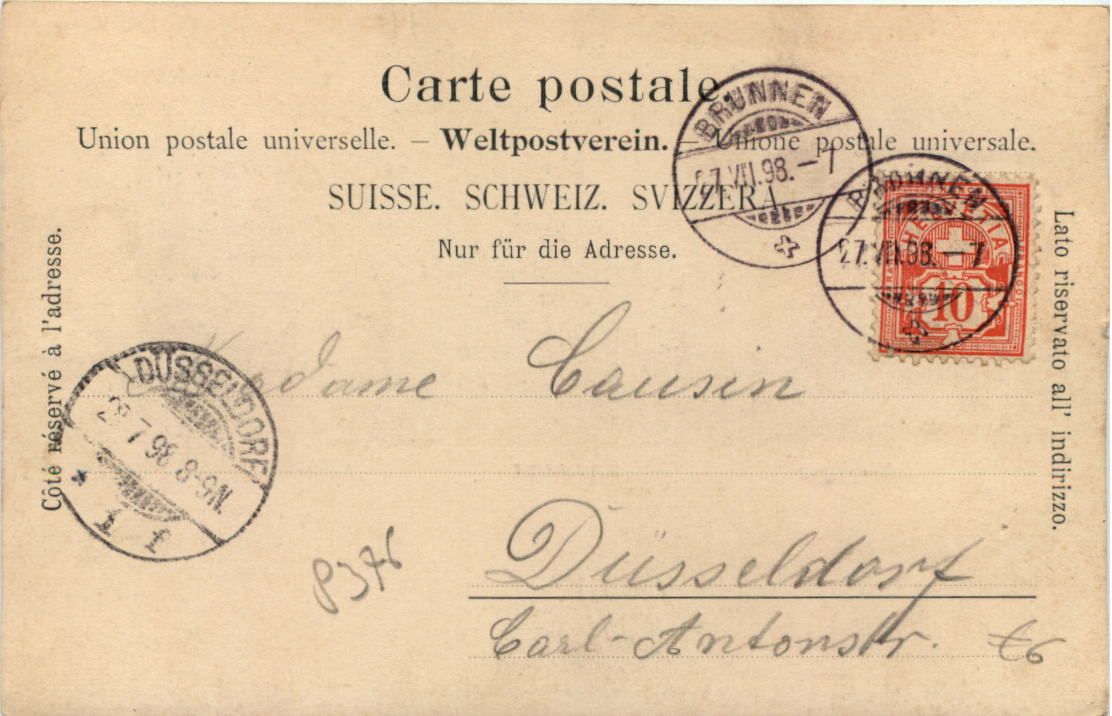 Carte postale.
Union postale universelle. — Weltpostverein. — Unione postale universale.
SUISSE. SCHWEIZ. SVIZZERA
Nur für die Adresse.
Côté réservé à l'adresse.
Lato riservato all' indirizzo.
BRUNNEN
27.VII.98.—7
BRUNNEN
27.VII.98.—7
HELVETIA
10
DÜSSELDORF
7 98 8-9N.
1 f
Madame Causin
Düsseldorf
Carl-Antonstr.
P376